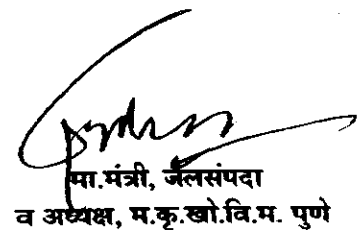 मा.मंत्री, जलसंपदा
व अध्यक्ष, म.कृ.खो.वि.म. पुणे